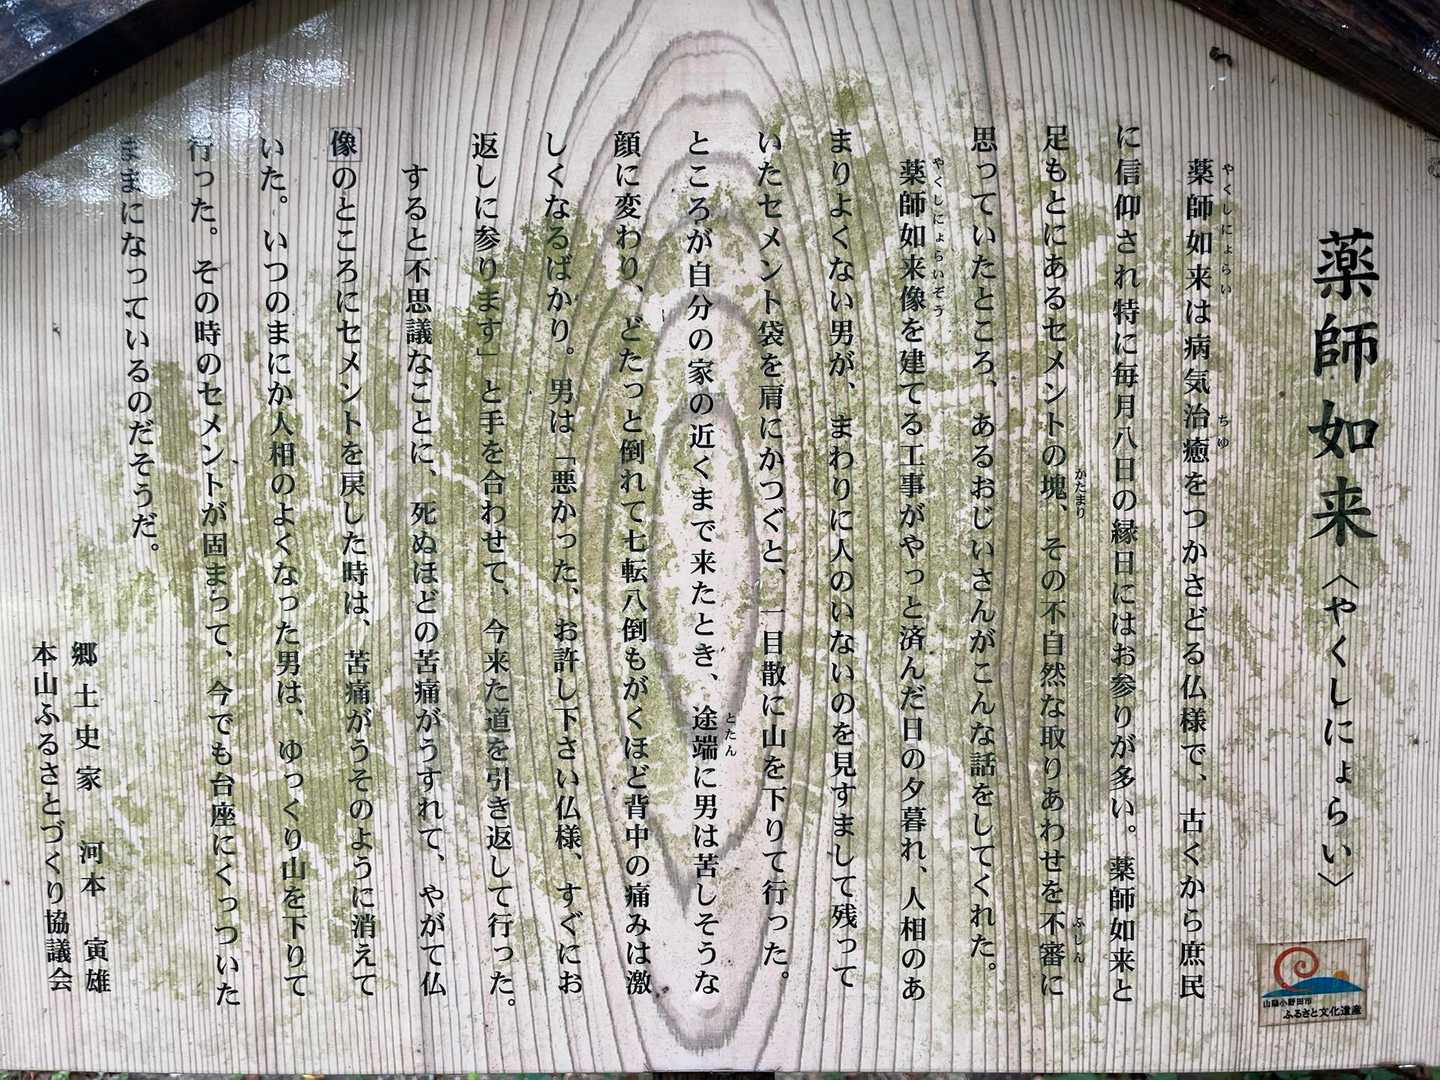 薬師如来〈やくしにょらい〉
薬師如来は病気治癒をつかさどる仏様で、古くから庶民
やくしにょらい
ちゆ
に信仰され特に毎月八日の縁日にはお参りが多い。薬師如来と
足もとにあるセメントの塊、その不自然な取りあわせを不審に
かたまり
ふしん
思っていたところ、あるおじいさんがこんな話をしてくれた。
薬師如来像を建てる工事がやっと済んだ日の夕暮れ、人相のあ
やくしにょらいぞう
まりよくない男が、まわりに人のいないのを見すまして残って
いたセメント袋を肩にかつぐと、一目散に山を下りて行った。
ところが自分の家の近くまで来たとき、途端に男は苦しそうな
とたん
顔に変わり、どたっと倒れて七転八倒もがくほど背中の痛みは激
しくなるばかり。男は「悪かった、お許し下さい仏様、すぐにお
返しに参ります」と手を合わせて、今来た道を引き返して行った。
すると不思議なことに、死ぬほどの苦痛がうすれて、やがて仏
像のところにセメントを戻した時は、苦痛がうそのように消えて
いた。いつのまにか人相のよくなった男は、ゆっくり山を下りて
行った。その時のセメントが固まって、今でも台座にくっついた
ままになっているのだそうだ。
郷土史家 河本 寅雄
本山ふるさとづくり協議会
山陽小野田市
ふるさと文化遺産